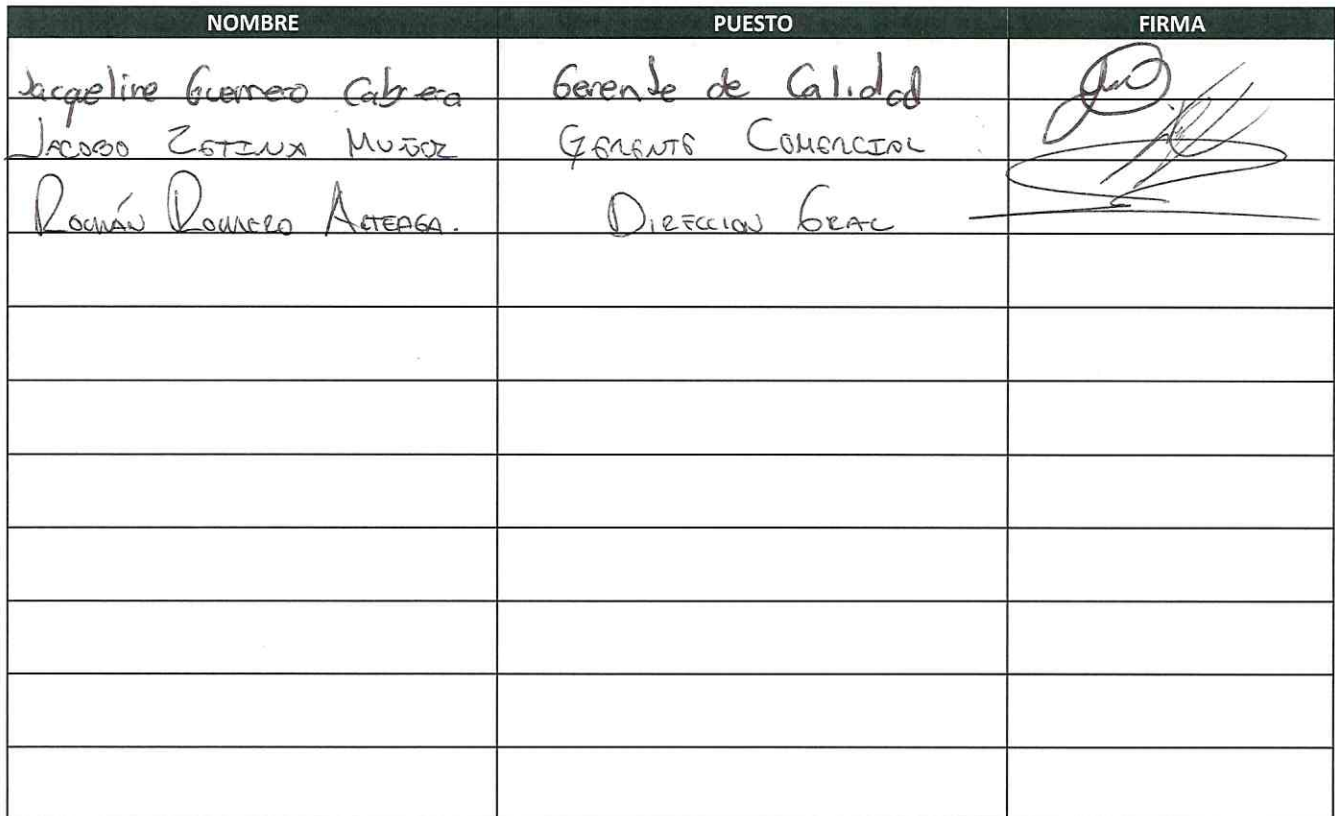 NOMBRE PUESTO FIRMA
Jacqeline Guerrero Cabrera Gerende de Calidad
JACOBO ZETINA MUÑOZ GERENTE COMERCIAL
ROMÁN ROMERO ARTEAGA. DIRECCION GRAL